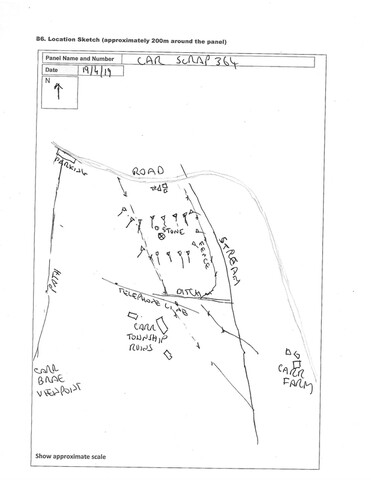 B6. Location Sketch (approximately 200m around the panel)
Panel Name and Number
CAR SCRAP 364
Date
19/4/19
N
ROAD
PARKING
STONE
FENCE
STREAM
PATH
DITCH
TELEPHONE
CARR
TOWNSHIP
RUINS
CARR
BRAE
VIEWPOINT
CARR
FARM
Show approximate scale